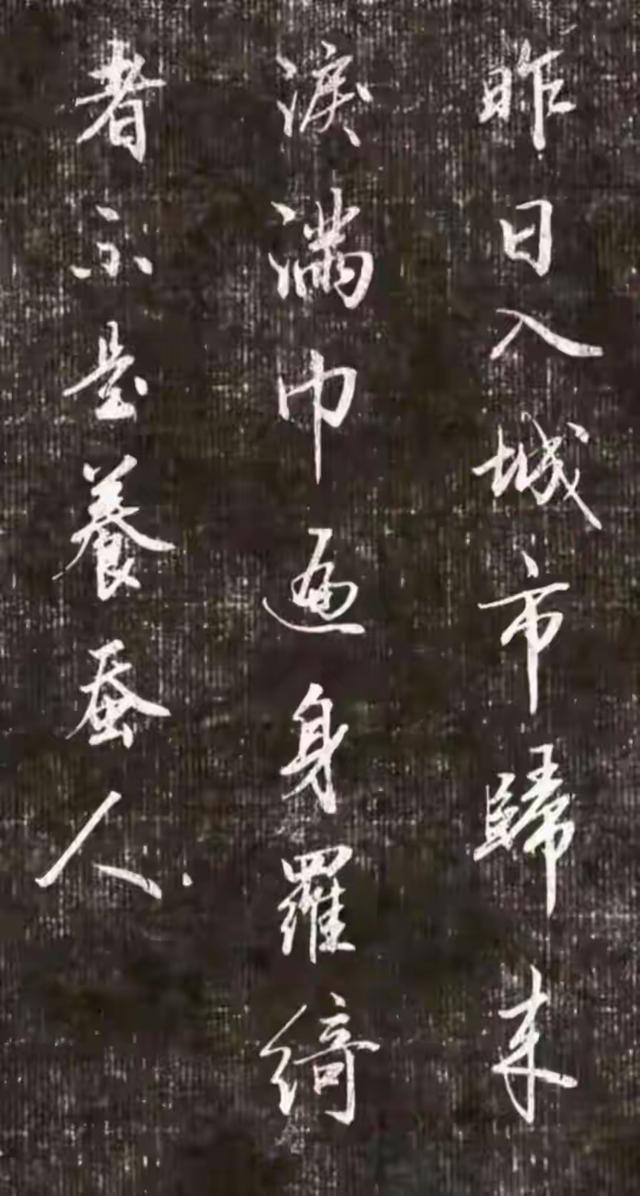 昨日入城市歸来
淚滿巾遍身羅綺
者不是養蚕人